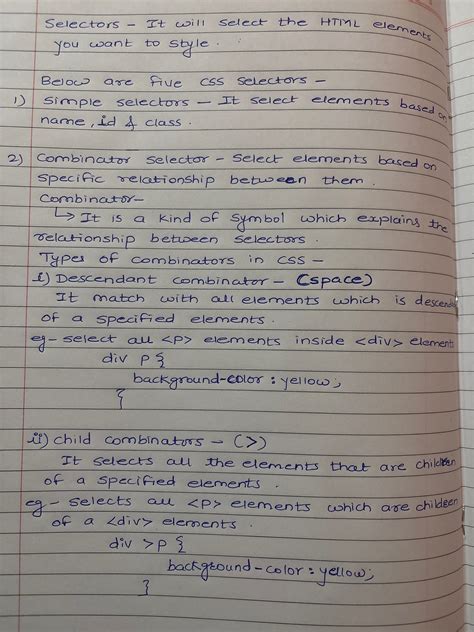 Selectors - It will select the HTML elements
you want to style.
Below are five CSS selectors -
1) Simple selectors - It select elements based on
name, id & class.
2) Combinator selector - Select elements based on
specific relationship between them.
Combinator-
↳ It is a kind of symbol which explains the
relationship between selectors.
Types of combinators in CSS -
i) Descendant combinator - (space)
It match with all elements which is descend
of a specified elements.
eg- select all <p> elements inside <div> elements
div p {
background-color : yellow;
{
ii) child combinators - (>)
It selects all the elements that are children
of a specified elements.
eg - selects all <p> elements which are children
of a <div> elements.
div >p {
background-color : yellow;
}